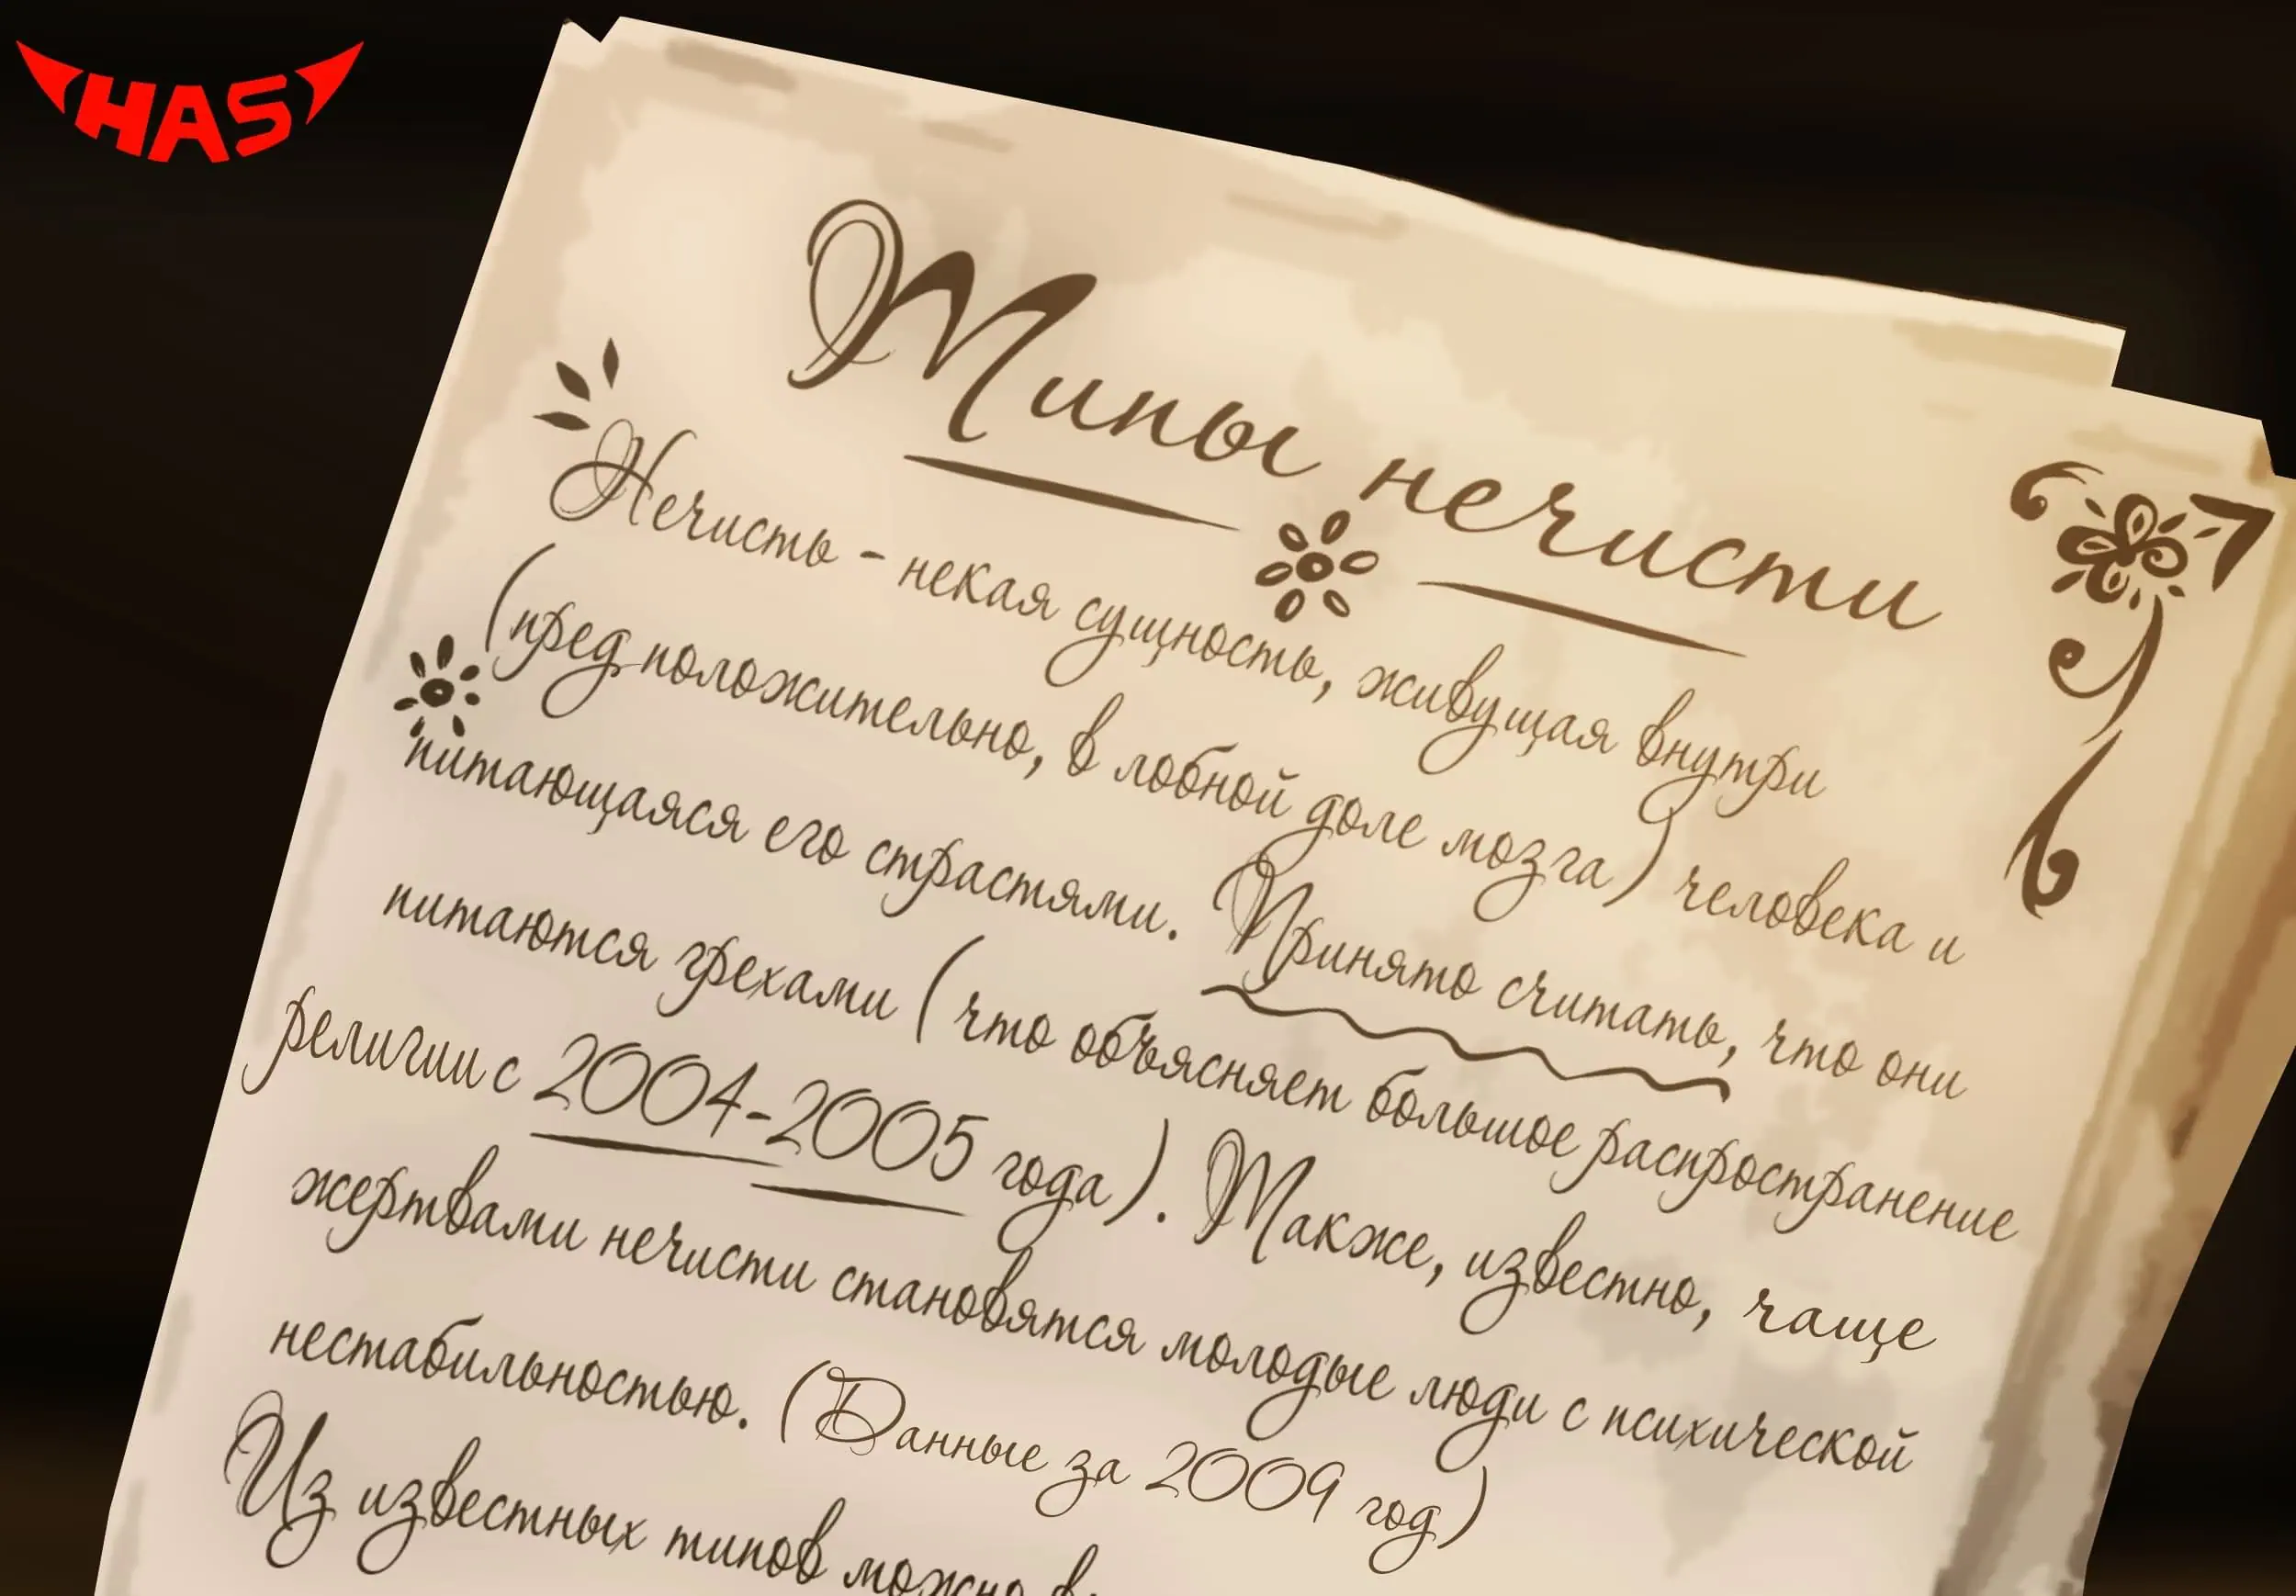 HAS
Типы нечисти
Нечисть - некая сущность, живущая внутри
(пред положительно, в лобной доле мозга) человека и
питающаяся его страстями. Принято считать, что они
питаются грехами (что объясняет большое распространение
религии с 2004-2005 года). Также, известно, чаще
жертвами нечисти становятся молодые люди с психической
нестабильностью. (Данные за 2009 год)
Из известных типов можно